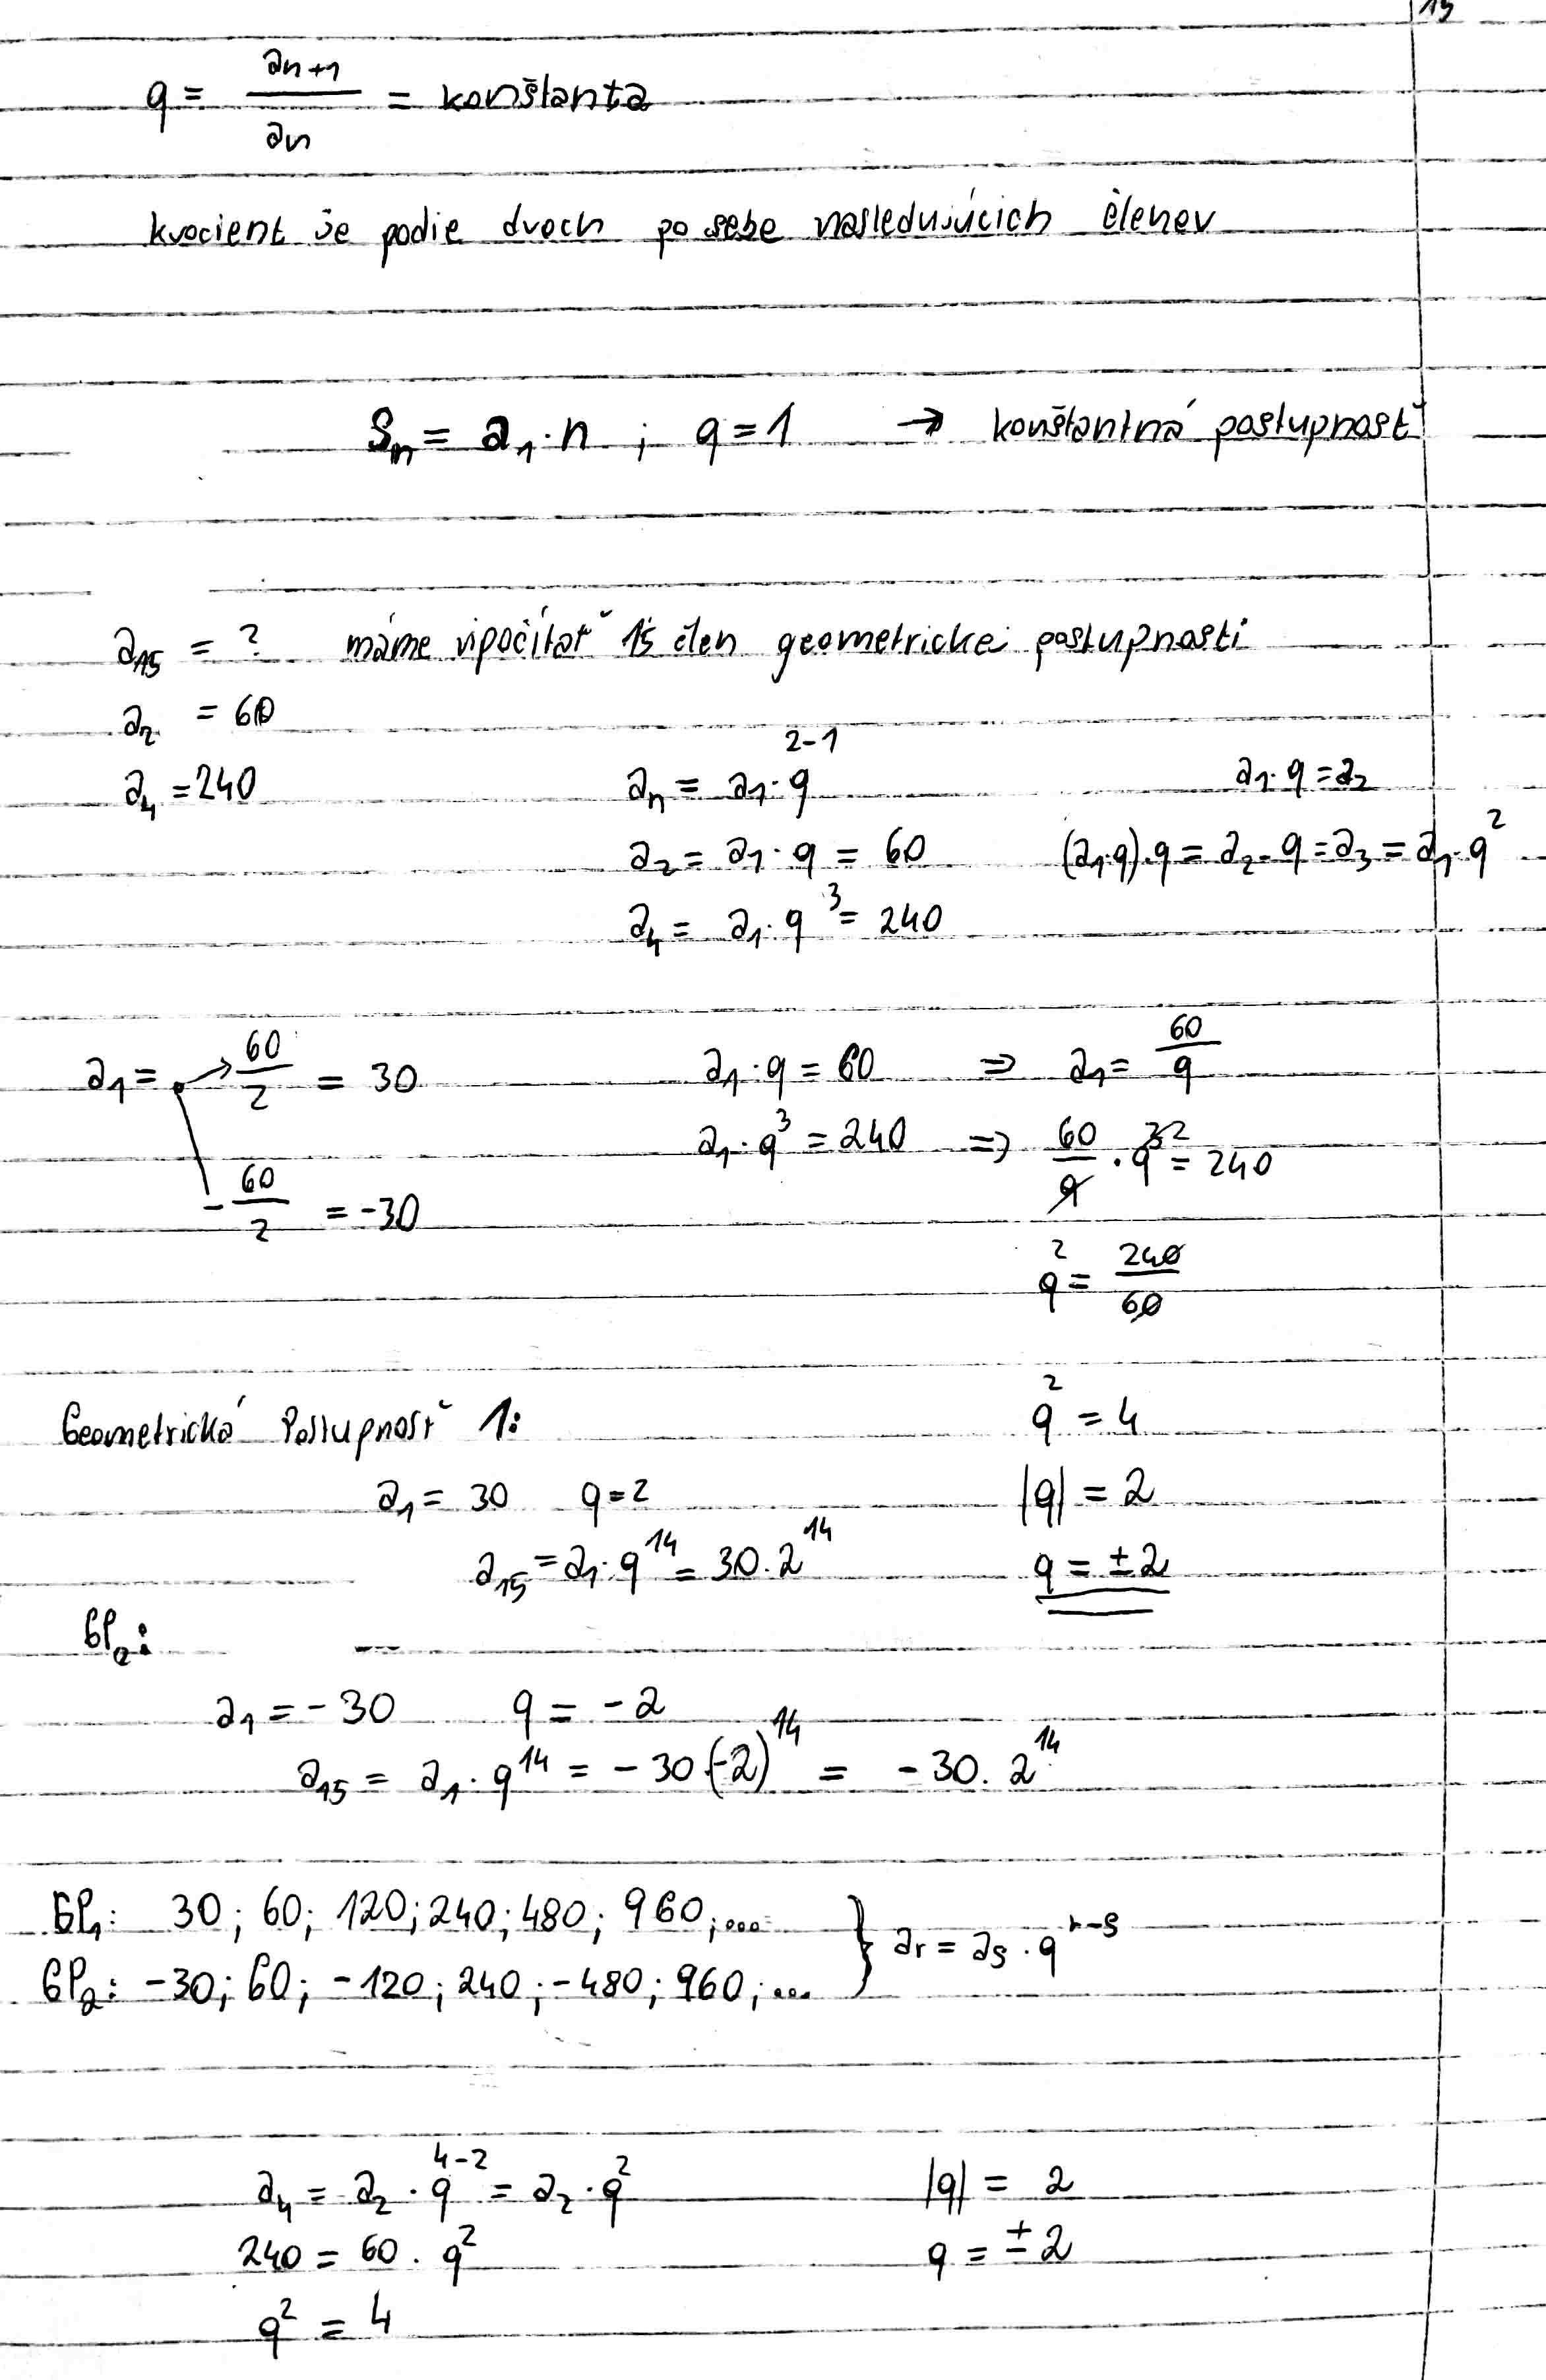 15
q = a_{n+1} / a_n = konštanta
kvocient je podie dvoch po sebe nasledujúcich členov
S_n = a_1 · n ; q = 1 → konštantná postupnosť
a_15 = ? máme vipočítať 15 člen geometrickej postupnosti
a_2 = 60
a_4 = 240
a_n = a_1 · q^{2-1}
a_1 · q = a_2
a_2 = a_1 · q = 60
(a_1·q)·q = a_2 · q = a_3 = a_1 · q^2
a_4 = a_1 · q^3 = 240
a_1 = 60/2 = 30
- 60/2 = -30
a_1 · q = 60 ⇒ a_1 = 60/q
a_1 · q^3 = 240 ⇒ 60/q · q^{32} = 240
q^2 = 240/60
q^2 = 4
|q| = 2
q = ± 2
Geometrická Postupnosť 1:
a_1 = 30 q = 2
a_15 = a_1 · q^14 = 30 . 2^14
GP_2:
a_1 = - 30 q = - 2
a_15 = a_1 · q^14 = - 30 (-2)^14 = - 30 . 2^14
GP_1: 30 ; 60 ; 120 ; 240 ; 480 ; 960 ; ...
GP_2: -30 ; 60 ; -120 ; 240 ; -480 ; 960 ; ...
} a_r = a_s · q^{r-s}
a_4 = a_2 · q^{4-2} = a_2 · q^2
240 = 60 . q^2
q^2 = 4
|q| = 2
q = ± 2